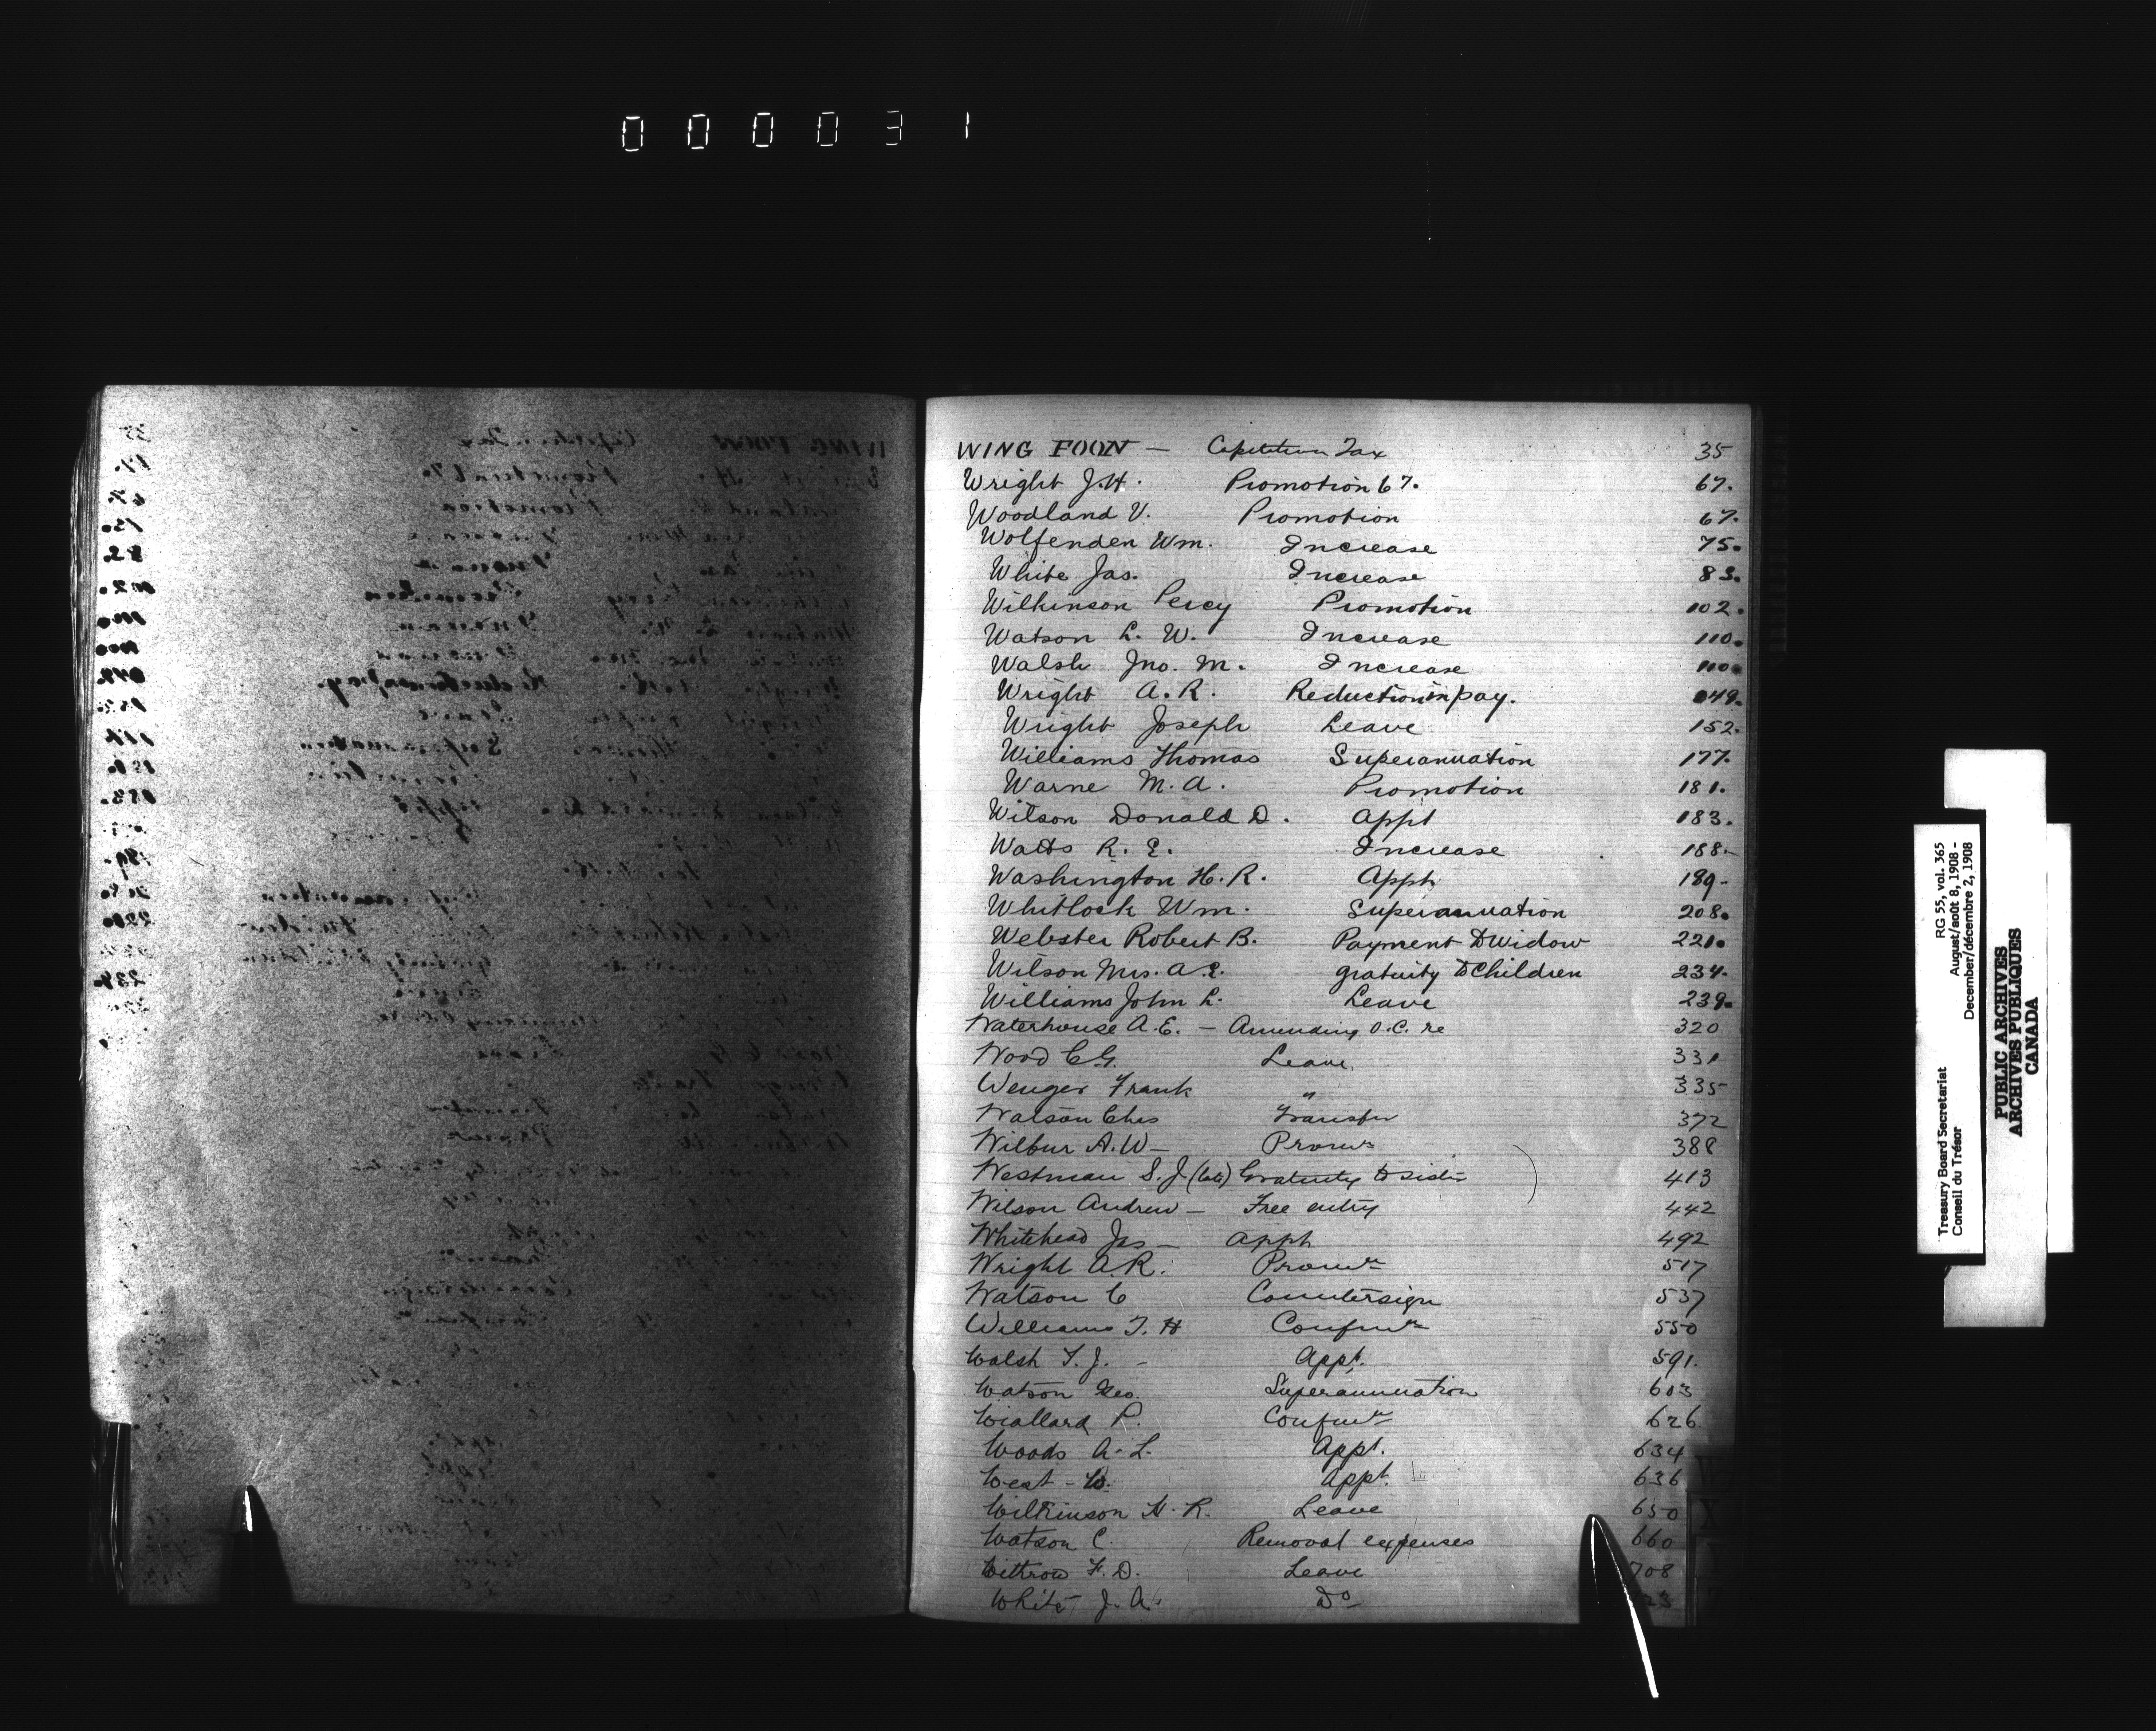 000031
WING FOON — Capitation Tax 35
Wright J.H. Promotion 67. 67.
Woodland V. Promotion 67.
Wolfenden Wm. Increase 75.
White Jas. Increase 83.
Wilkinson Percy Promotion 102.
Watson L. W. Increase 110.
Walsh Jno. M. Increase 110.
Wright A.R. Reduction in pay. 149.
Wright Joseph Leave 152.
Williams Thomas Superannuation 177.
Warne M.A. Promotion 181.
Wilson Donald D. Appt 183.
Watts R. E. Increase 188.
Washington H.R. Appt 189.
Whitlock Wm. Superannuation 208.
Webster Robert B. Payment to Widow 221.
Wilson Mrs. A.E. gratuity to Children 234.
Williams John L. Leave 239.
Waterhouse A.E. — Amending O.C. re 320
Wood C.G. Leave 331
Wenger Frank " 335
Watson Chas Transfer 372
Wilbur A.W — Promn 388
Westman S.J (late) Gratuity to sister 413
Wilson Andrew — Free entry 442
Whitehead Jas — Appt 492
Wright A.R. Promn 517
Watson C Countersign 537
Williams T. H Confirmn 550
Walsh T.J. - Appt. 591.
Watson Geo. Superannuation 603
Wiallard P. Confirmn 626
Woods A.L. Appt. 634
West - W. Appt. 636
Wilkinson H.R. Leave 650
Watson C. Removal expenses 660
Withrow F.D. Leave 708
White J.A. Do 23
X
Treasury Board Secretariat RG 55, vol. 365
Conseil du Trésor August/août 8, 1908 -
December/décembre 2, 1908
PUBLIC ARCHIVES
ARCHIVES PUBLIQUES
CANADA